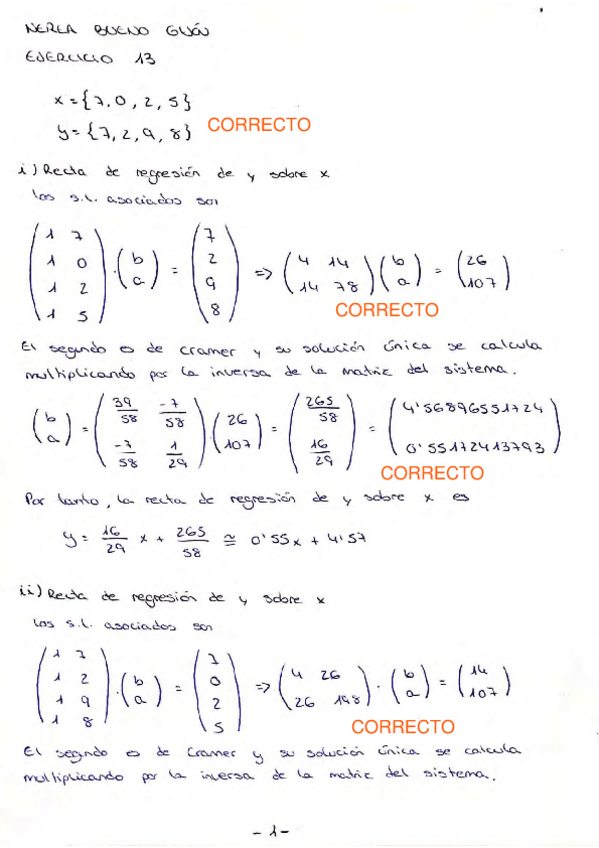 NEREA BUENO GIJÓN
EJERCICIO 13
x = {7, 0, 2, 5}
y = {7, 2, 9, 8} CORRECTO
i) Recta de regresión de y sobre x
los s.l. asociados son
(1 7; 1 0; 1 2; 1 5) · (b; a) = (7; 2; 9; 8) => (4 14; 14 78)(b; a) = (26; 107)
CORRECTO
El segundo es de Cramer y su solución única se calcula
multiplicando por la inversa de la matriz del sistema.
(b; a) = (39/58 -7/58; -7/58 1/29) · (26; 107) = (265/58; 16/29) = (4'56896551724; 0'551724413793)
CORRECTO
Por tanto, la recta de regresión de y sobre x es
y = 16/29 x + 265/58 ≅ 0'55x + 4'57
ii) Recta de regresión de y sobre x
los s.l. asociados son
(1 7; 1 2; 1 9; 1 8) · (b; a) = (7; 0; 2; 5) => (4 26; 26 198) · (b; a) = (14; 107)
CORRECTO
El segundo es de Cramer y su solución única se calcula
multiplicando por la inversa de la matriz del sistema.
- 1 -